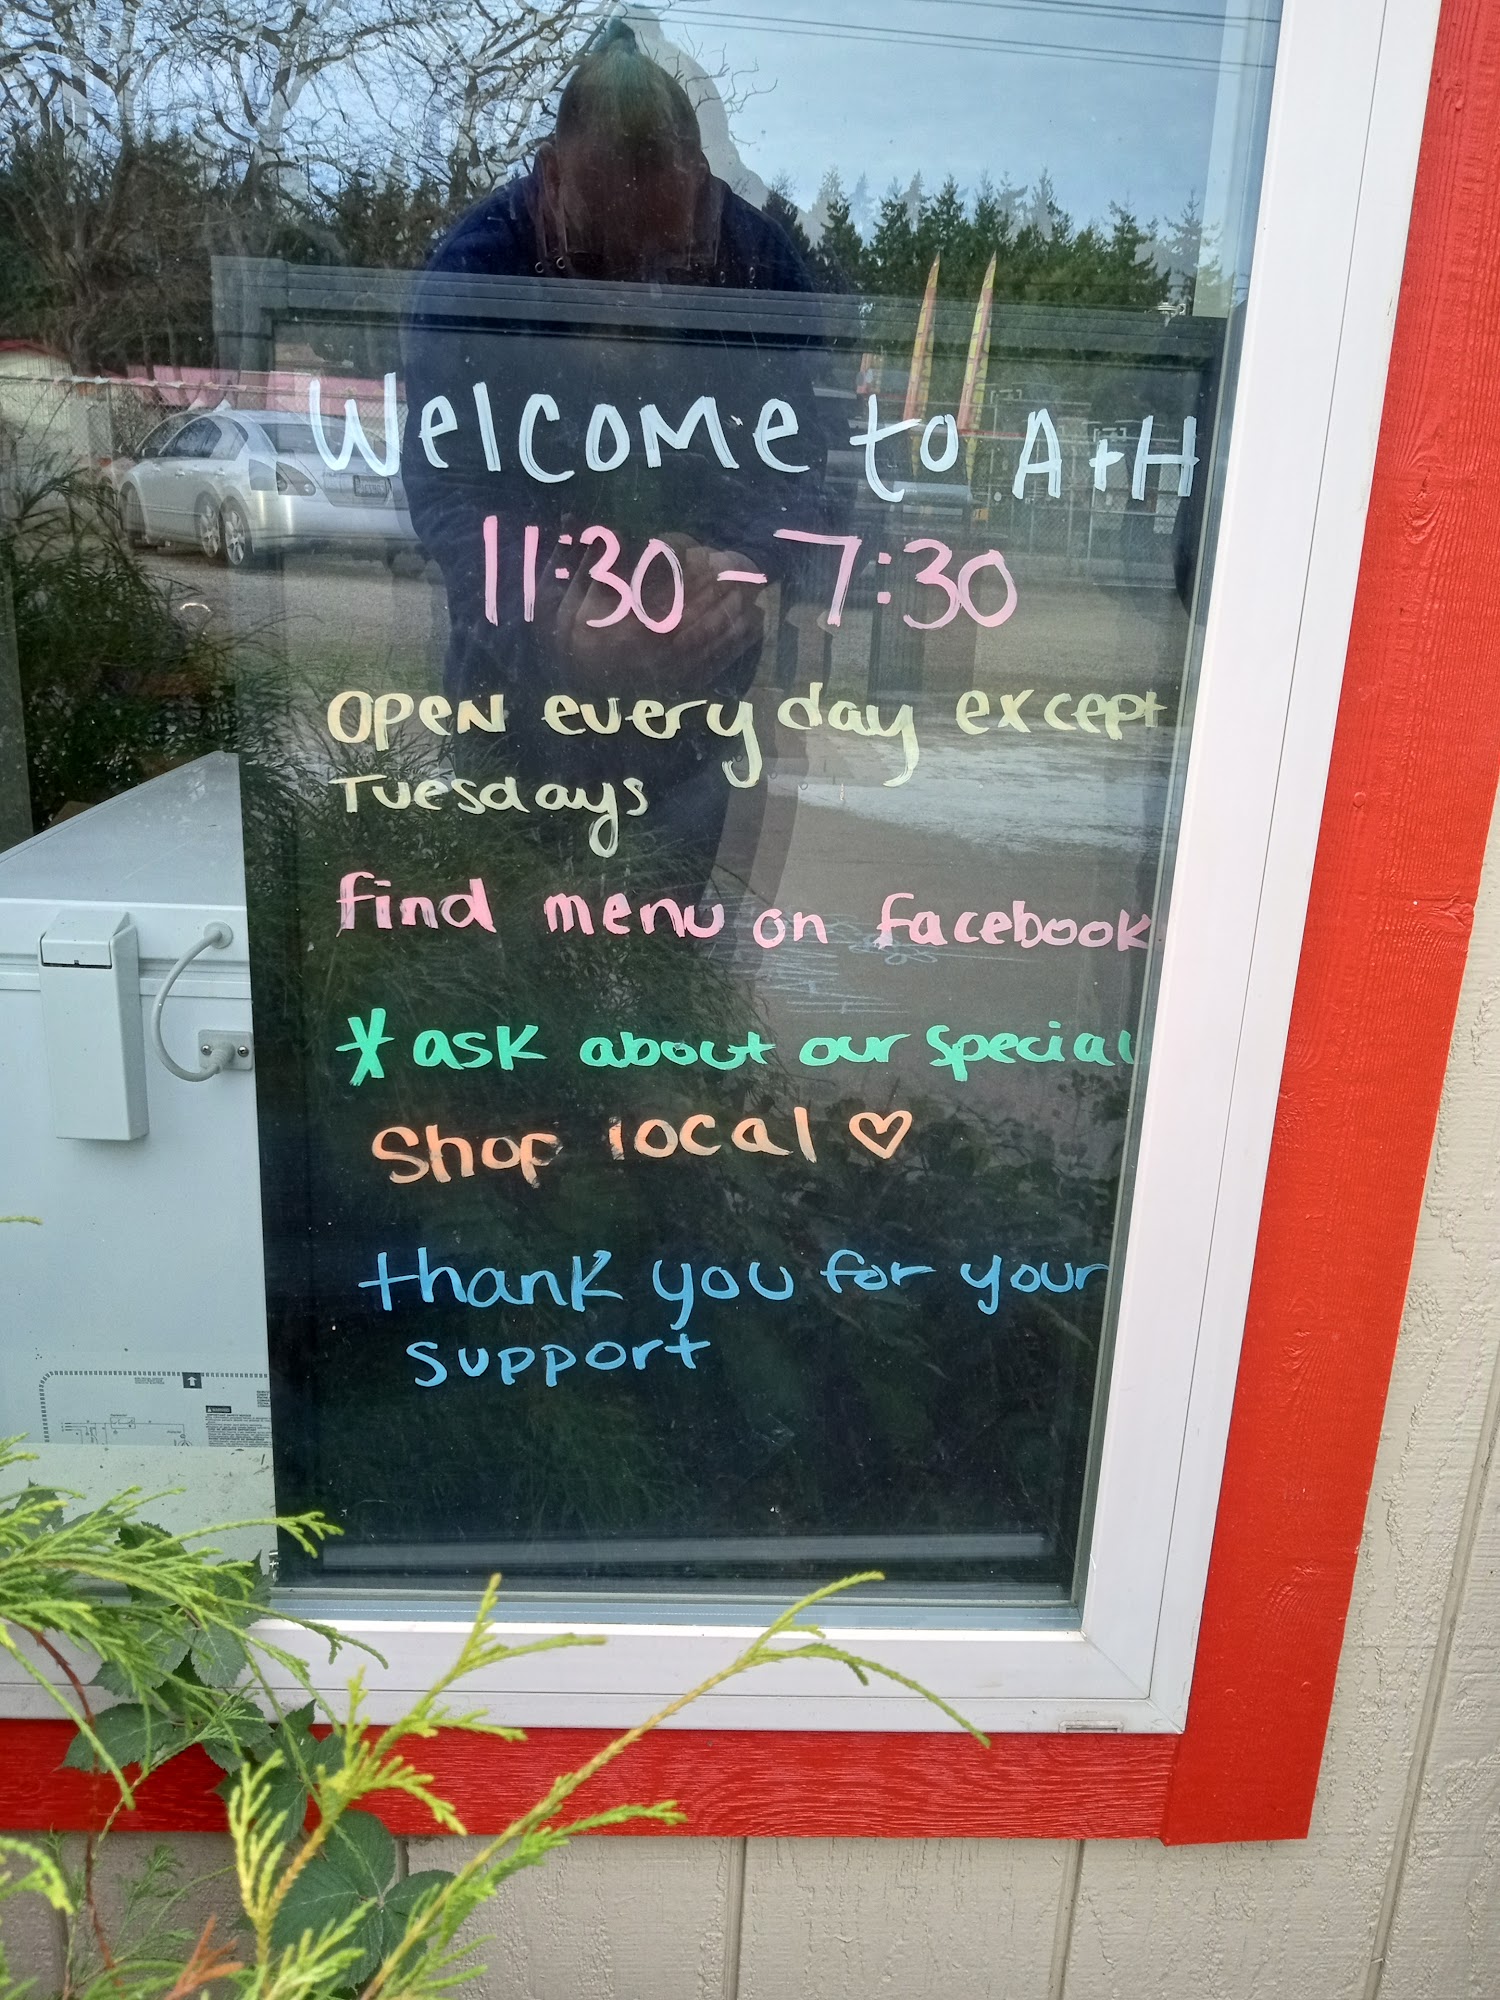 Welcome to A+H
11:30 - 7:30
OPEN everyday except
Tuesdays
find menu on facebook
* ask about our special
Shop local ♡
thank you for your
support